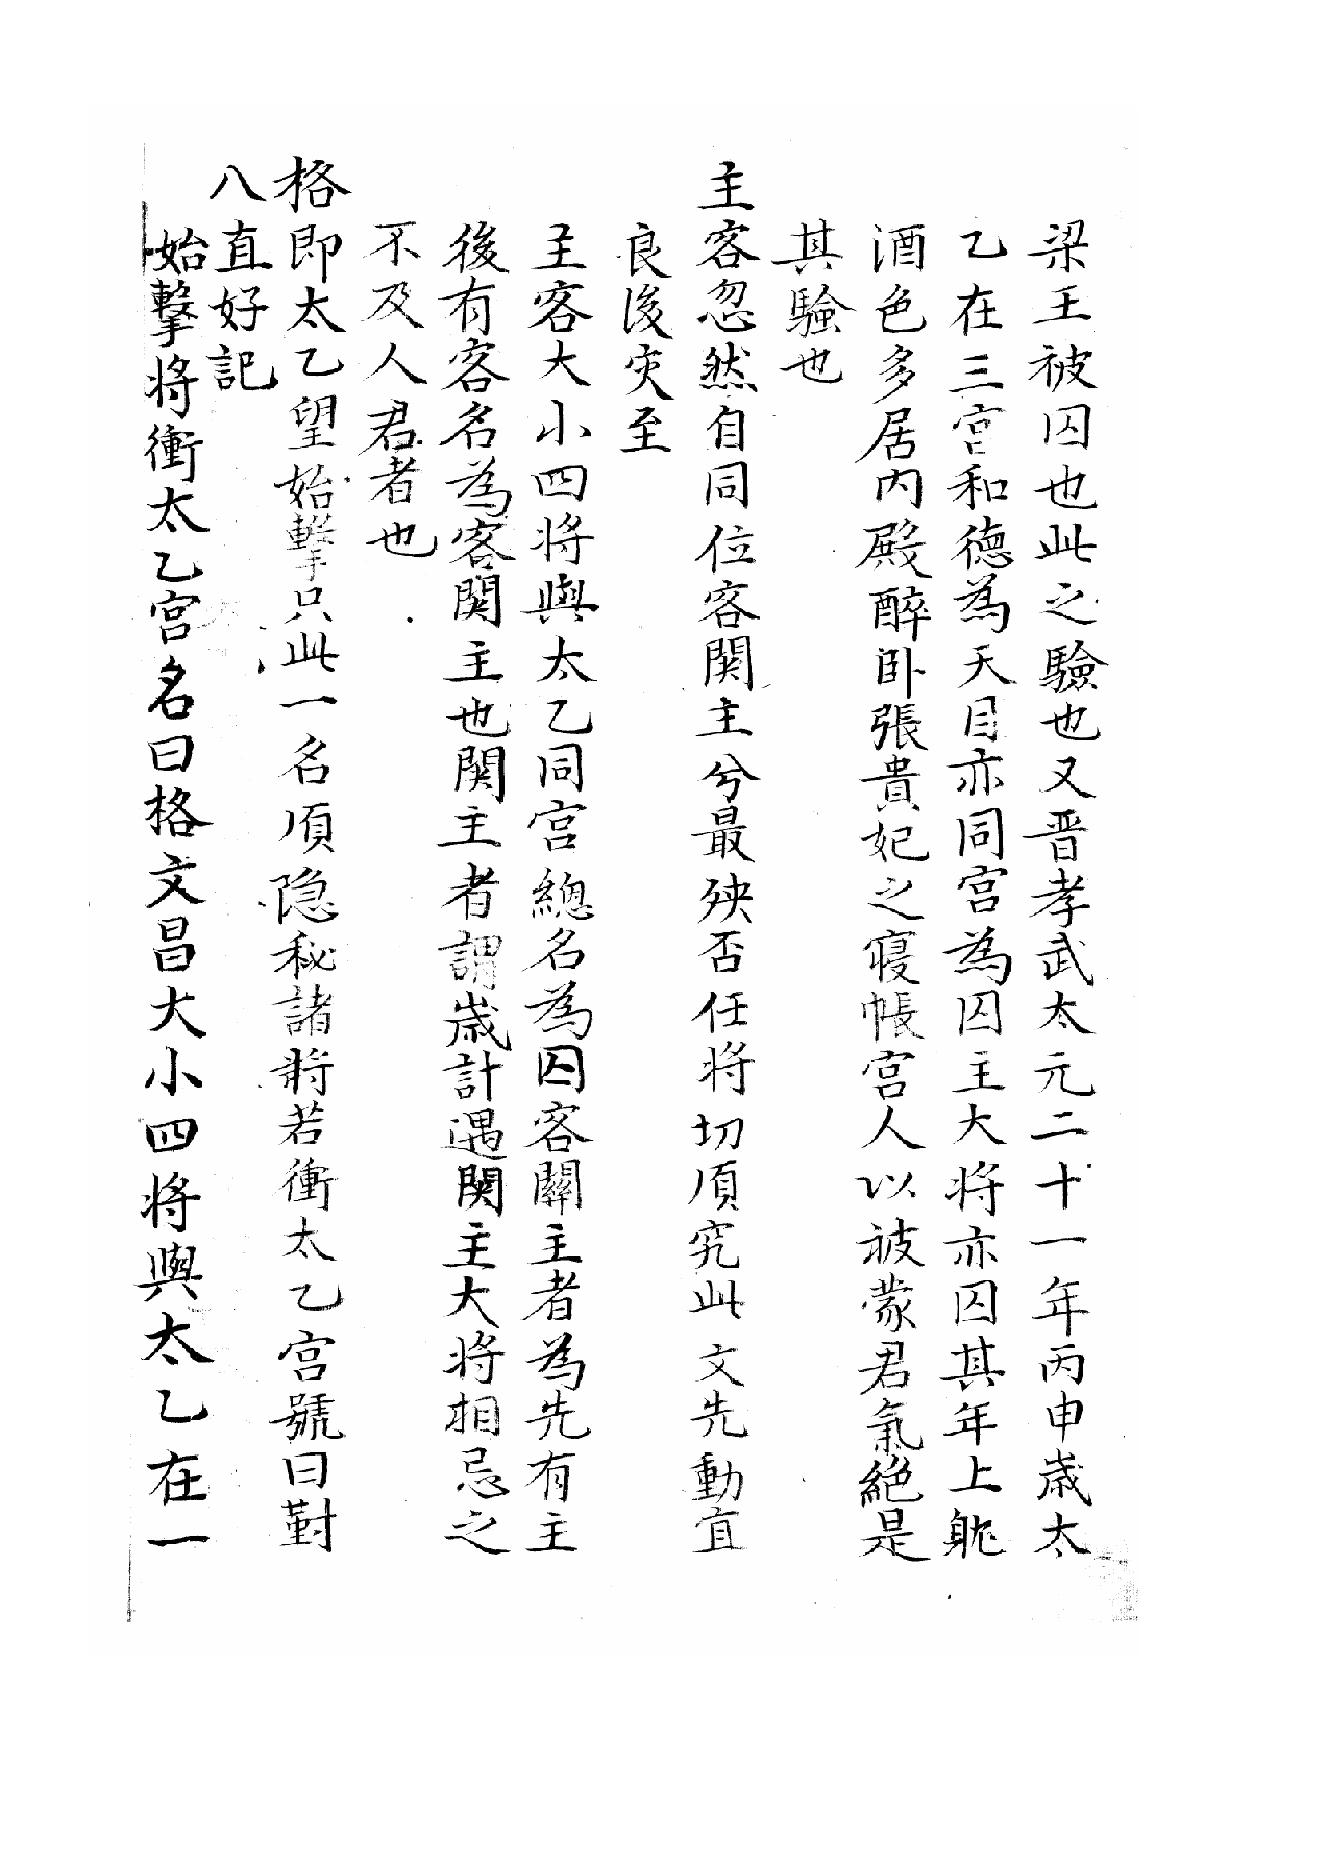 梁王被囚也此之驗也又晋孝武太元二十一年丙申歲太
乙在三宮和德為天目亦同宮為囚主大将亦囚其年上躭
酒色多居内殿醉卧張貴妃之寝帳宮人以被蒙君氣絕是
其驗也
主客忽然自同位客関主兮最殃否任将切湏究此文先動宜
良後灾至
主客大小四将與太乙同宮總名為囚客關主者為先有主
後有客名為客関主也関主者謂歲計遇関主大将相忌之
不及人君者也
格即太乙望始擊只此一名湏隐秘諸将若衝太乙宮號曰對
八直好記
始擊将衝太乙宮名曰格文昌大小四将與太乙在一